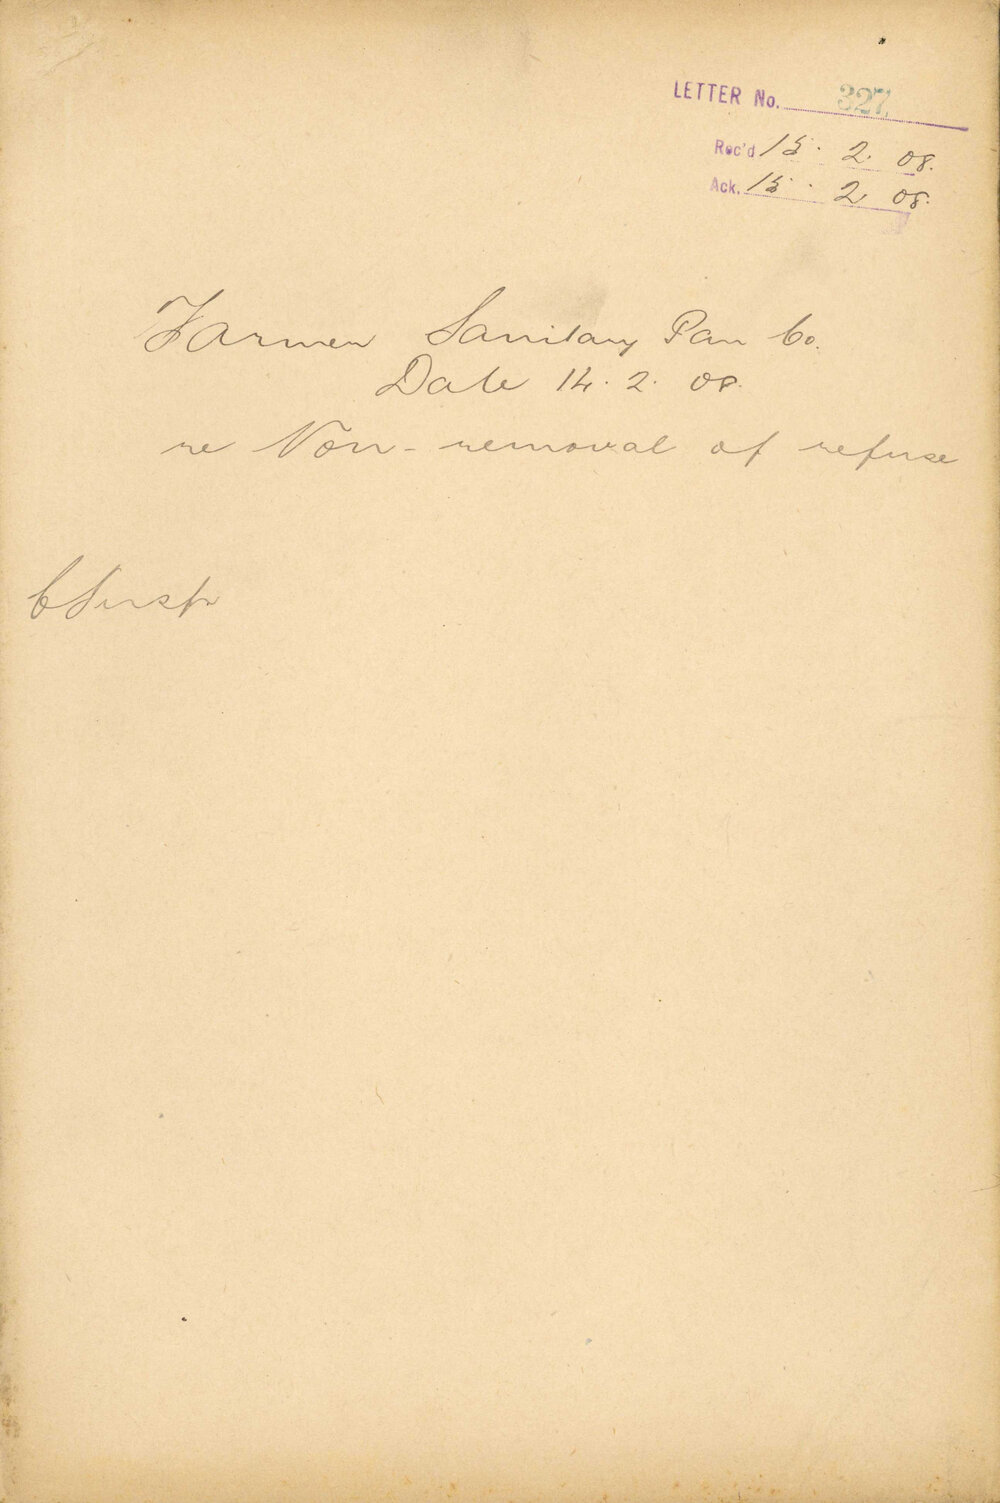 LETTER No. 327
Rec'd 15. 2. 08.
Ack. 15. 2. 08.
Farmer Sanitary Pan Co.
Date 14. 2. 08.
re Non-removal of refuse
C S Insp